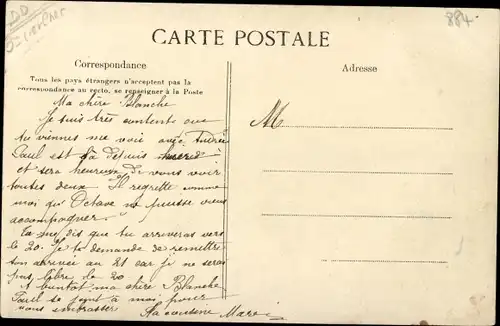 DD
884
CARTE POSTALE
Correspondance
Tous les pays étrangers n'acceptent pas la
correspondance au recto, se renseigner à la Poste
Adresse
M
Ma chère Blanche
Je suis très contente que
tu viennes me voir avec Andrée
Paul est là depuis
et sera heureux de vous voir
toutes deux Il regrette comme
moi qu'Octave ne puisse vous
accompagner
Tu me dis que tu arriveras vers
le 20. Je te demande de remettre
ton arrivée au 21 car je ne serai
pas libre le 20
A bientôt ma chère Blanche
Paul se joint à moi pour
vous embrasser
Ta cousine Marie